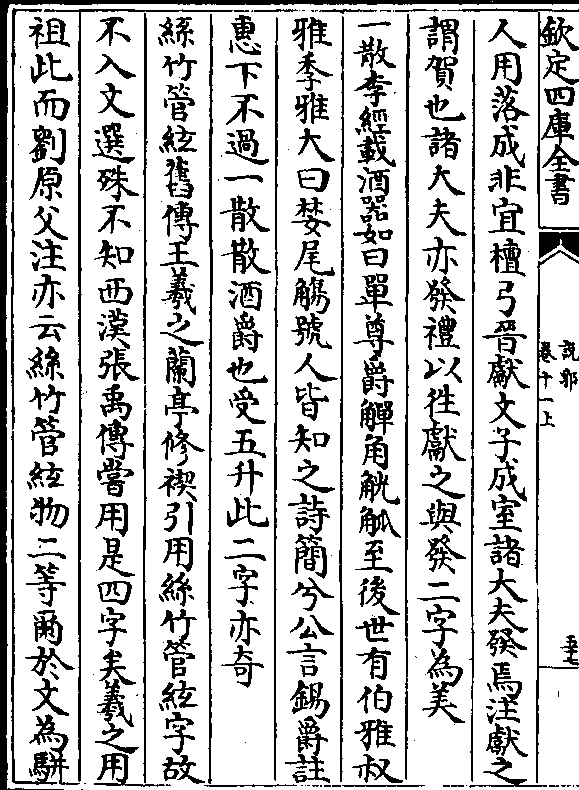 欽定四庫全書
說郛
卷十一上
五十七
人用落成非宜檀弓晉獻文子成室諸大夫發焉注獻之
謂賀也諸大夫亦發禮以徃獻之與發二字為美
一散李經載酒器如曰單尊爵觶角觥觚至後世有伯雅叔
雅季雅大曰婪尾觴號人皆知之詩簡兮公言錫爵註
惠下不過一散散酒爵也受五升此二字亦奇
絲竹管絃舊傳王羲之蘭亭修禊引用絲竹管絃字故
不入文選殊不知西漢張禹傳嘗用是四字矣羲之用
祖此而劉原父注亦云絲竹管絃物二等爾於文為駢